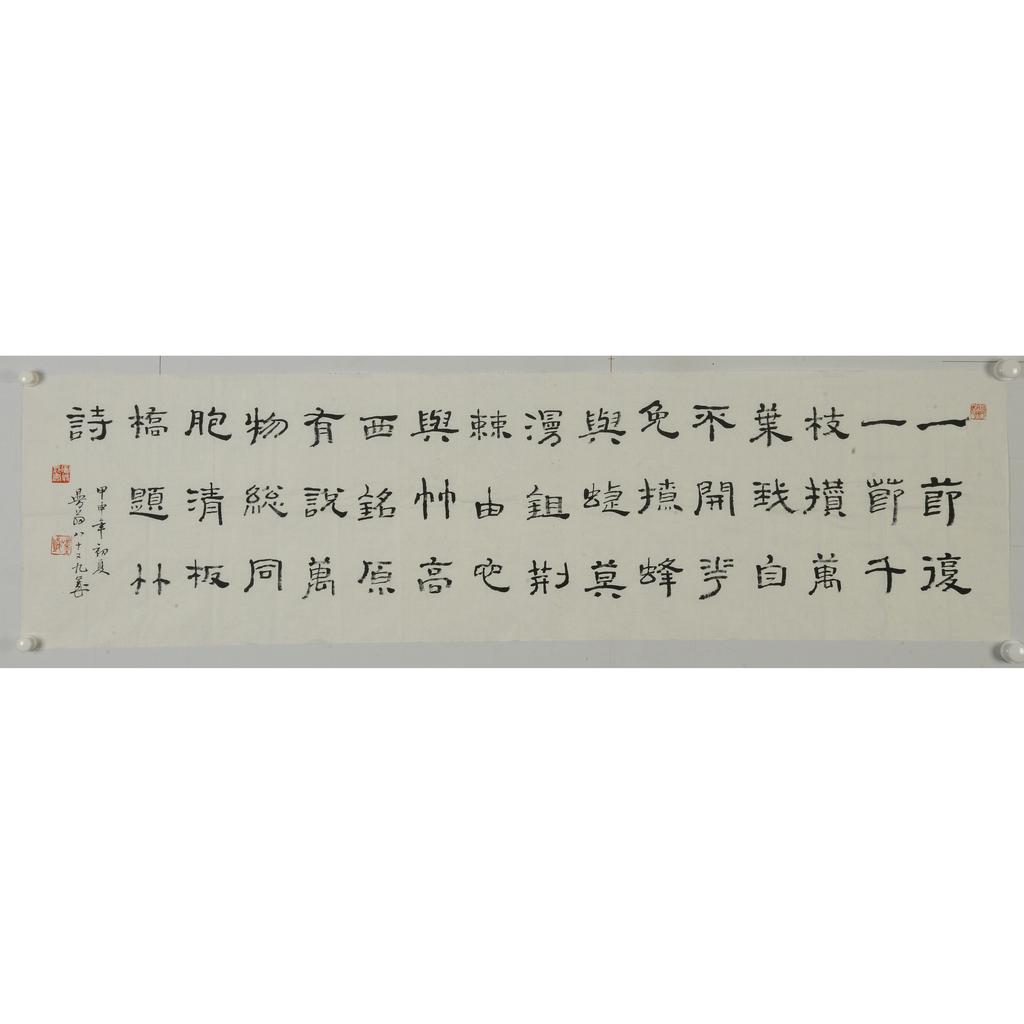 一莭復
一莭千
枝攢萬
葉我自
不開花
免撩蜂
與蝶莫
漫鉏荊
棘由它
與竹高
西銘原
有說萬
物総同
胞清板
橋題竹
詩
甲申年初夏
曼翁八十又九